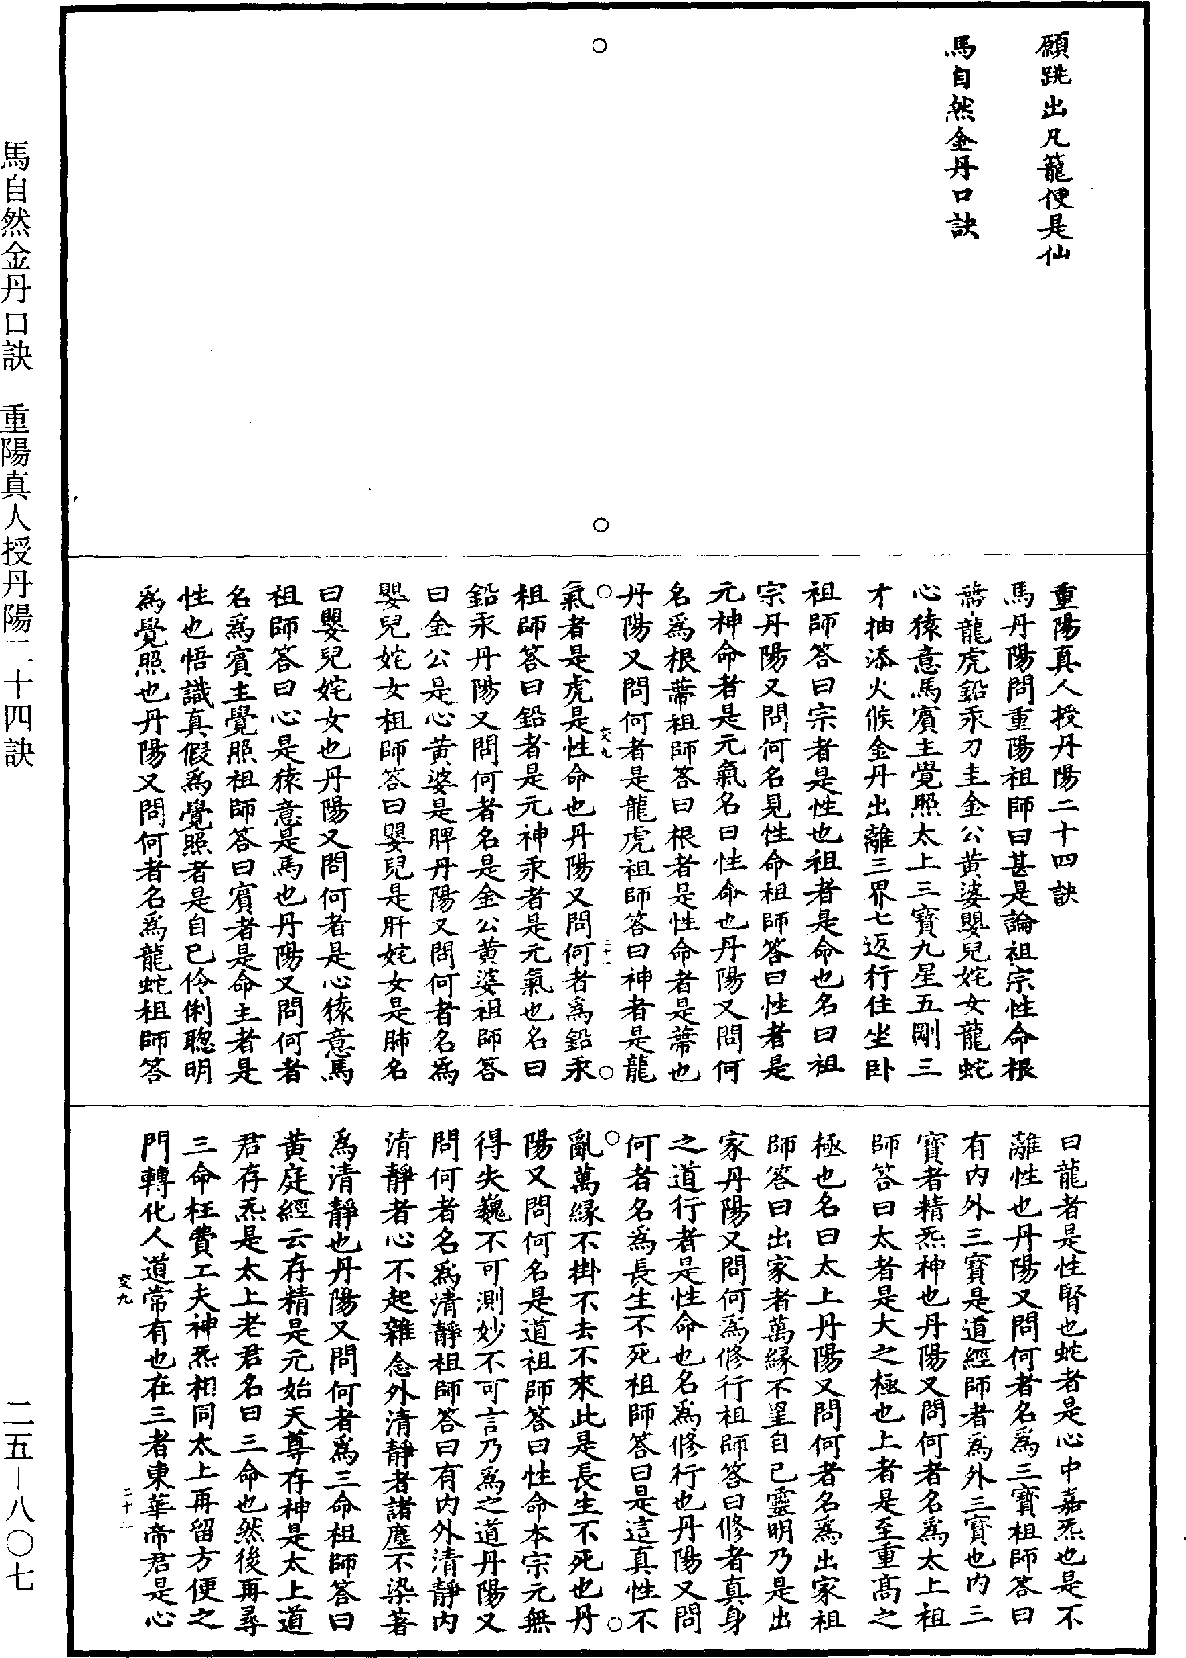 願跳出凡籠便是仙
馬自然金丹口訣
重陽真人授丹陽二十四訣
馬丹陽問重陽祖師曰甚是論祖宗性命根
蔕龍虎鉛汞刀圭金公黃婆嬰兒姹女龍蛇
心猿意馬賓主覺照太上三寶九星五剛三
才抽添火候金丹出離三界七返行住坐卧
祖師答曰宗者是性也祖者是命也名曰祖
宗丹陽又問何名見性命祖師答曰性者是
元神命者是元氣名曰性命也丹陽又問何
名為根蔕祖師答曰根者是性命者是蔕也
丹陽又問何者是龍虎祖師答曰神者是龍
交九
二十一
氣者是虎是性命也丹陽又問何者為鉛汞
祖師答曰鉛者是元神汞者是元氣也名曰
鉛汞丹陽又問何者名是金公黃婆祖師答
曰金公是心黃婆是脾丹陽又問何者名為
嬰兒姹女祖師答曰嬰兒是肝姹女是肺名
曰嬰兒姹女也丹陽又問何者是心猿意馬
祖師答曰心是猿意是馬也丹陽又問何者
名為賓主覺照祖師答曰賓者是命主者是
性也悟識真假為覺照者是自已伶俐聰明
為覺照也丹陽又問何者名為龍蛇祖師答
曰龍者是性腎也蛇者是心中嘉炁也是不
離性也丹陽又問何者名為三寶祖師答曰
有内外三寶是道經師者為外三寶也内三
寶者精炁神也丹陽又問何者名為太上祖
師答曰太者是大之極也上者是至重高之
極也名曰太上丹陽又問何者名為出家祖
師答曰出家者萬緣不罣自已靈明乃是出
家丹陽又問何為修行祖師答曰修者真身
之道行者是性命也名為修行也丹陽又問
何者名為長生不死祖師答曰是這真性不
亂萬緣不掛不去不來此是長生不死也丹
陽又問何名是道祖師答曰性命本宗元無
得失巍不可測妙不可言乃為之道丹陽又
問何者名為清靜祖師答曰有内外清靜内
清靜者心不起雜念外清靜者諸塵不染著
為清靜也丹陽又問何者為三命祖師答曰
黃庭經云存精是元始天尊存神是太上道
君存炁是太上老君名曰三命也然後再尋
三命枉費工夫神炁相同太上再留方便之
門轉化人道常有也在三者東華帝君是心
交九
二十二
馬自然金丹口訣　重陽真人授丹陽二十四訣
二五—八〇七